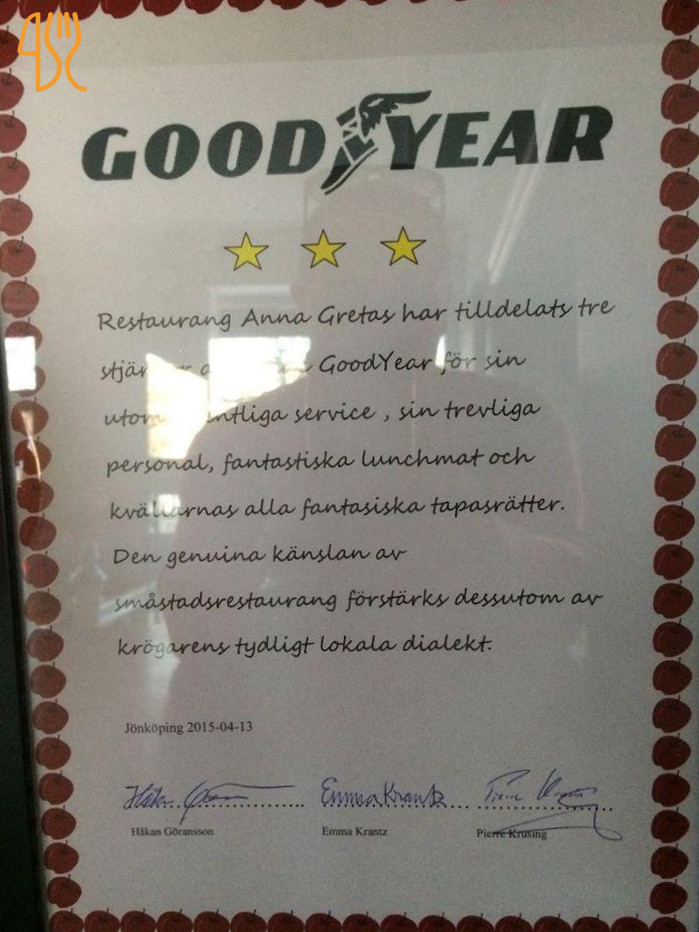 GOOD YEAR
Restaurang Anna Gretas har tilldelats tre
GoodYear för sin
service, sin trevliga
personal, fantastiska lunchmat och
kvällarnas alla fantasiska tapasrätter.
Den genuina känslan av
småstadsrestaurang förstärks dessutom av
krögarens tydligt lokala dialekt.
Jönköping 2015-04-13
Emma Krantz
Håkan Göransson Emma Krantz Pierre Krusing